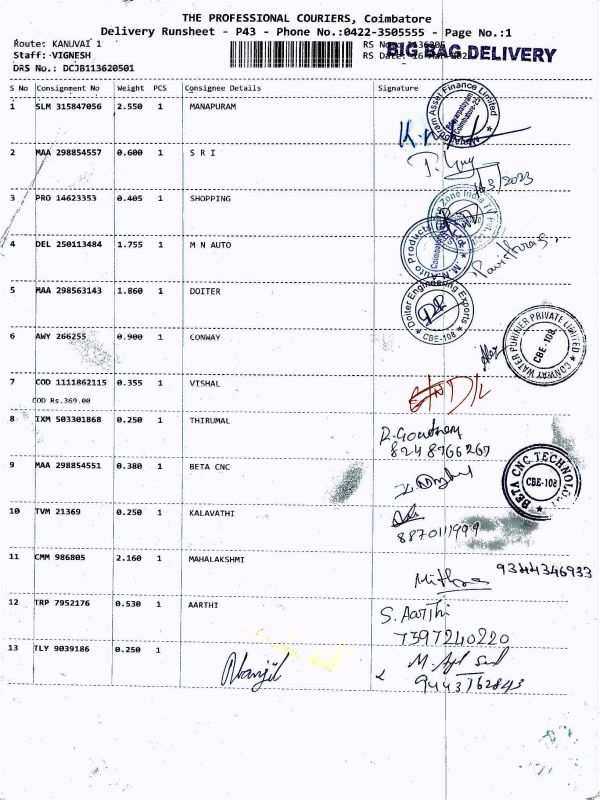 THE PROFESSIONAL COURIERS, Coimbatore
Delivery Runsheet - P43 - Phone No.:0422-3505555 - Page No.:1
Route: KANUVAI 1
RS No
BIG BAG DELIVERY
Staff: VIGNESH
RS Date:
DRS No.: DCJB113620501
S No Consignment No Weight PCS Consignee Details Signature
1 SLM 315847056 2.550 1 MANAPURAM
2 MAA 298854557 0.600 1 S R I
3 PRO 14623353 0.405 1 SHOPPING
4 DEL 250113484 1.755 1 M N AUTO
M.N.Auto Products
5 MAA 298563143 1.860 1 DOITER
Doiter Engineering Exports
CBE-108
6 AWY 266255 0.900 1 CONWAY
CONWAY WATER PURIFIER PRIVATE LIMITED
CBE-108.
7 COD 1111862115 0.355 1 VISHAL
COD Rs.369.00
8 IXM 503301868 0.250 1 THIRUMAL
R. Goutham
8248766267
9 MAA 298854551 0.380 1 BETA CNC
BETA CNC TECHNOLOGY
CBE-108
10 TVM 21369 0.250 1 KALAVATHI
8870111999
11 CMM 986805 2.160 1 MAHALAKSHMI
Mithra
9344346933
12 TRP 7952176 0.530 1 AARTHI
S. Aarthi
7397240220
13 TLY 9039186 0.250 1
9443762843